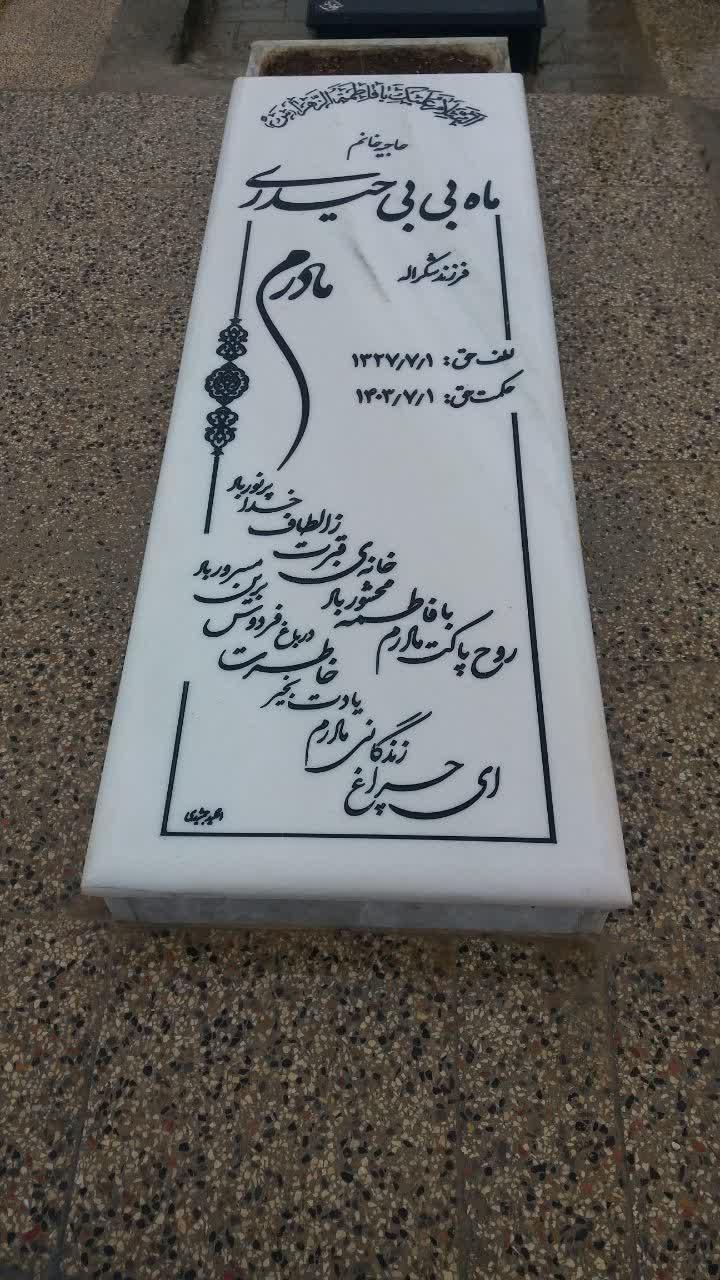 السلام علیک یا فاطمة الزهرا س
حاجیه خانم
ماه بی بی حیدری
فرزند شکراله
مادرم
لطف حق: ۱۳۲۷/۷/۱
حکمت حق: ۱۴۰۳/۷/۱
ای چراغ زندگانی مادرم یادت بخیر
خاطرت در باغ فردوس برین مسرور باد
روح پاکت مادرم با فاطمه محشور باد
خانه‌ی قبرت ز الطاف خدا پرنور باد